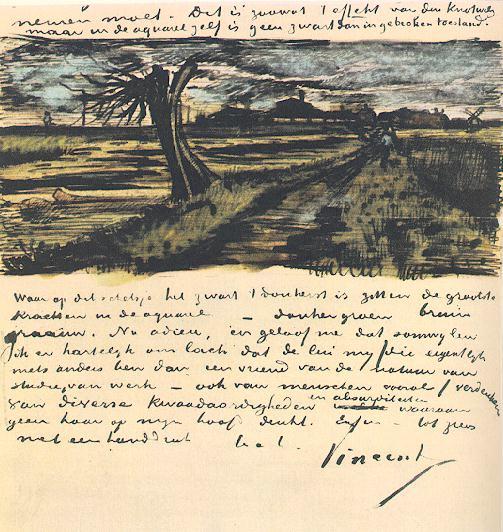 nemen moet. Dit is zoowat t effekt van den Knotwilg
maar in de aquarel zelf is geen zwart dan in gebroken toestand.
Waar op dit schetsje het zwart t donkerst is zitten de grootste
krachten in de aquarel — donkergroen bruin
graauw. Nu adieu, en geloof me dat somwylen
ik er hartelyk om lach dat de lui my (die eigentlyk
niets anders ben dan een vriend van de natuur van
studie, van werk — ook van menschen vooral) verdenken
van diverse kwaadaardigheden en absurditeiten waaraan
geen haar op myn hoofd denkt. Enfin — tot ziens
met een handdruk
Vincent